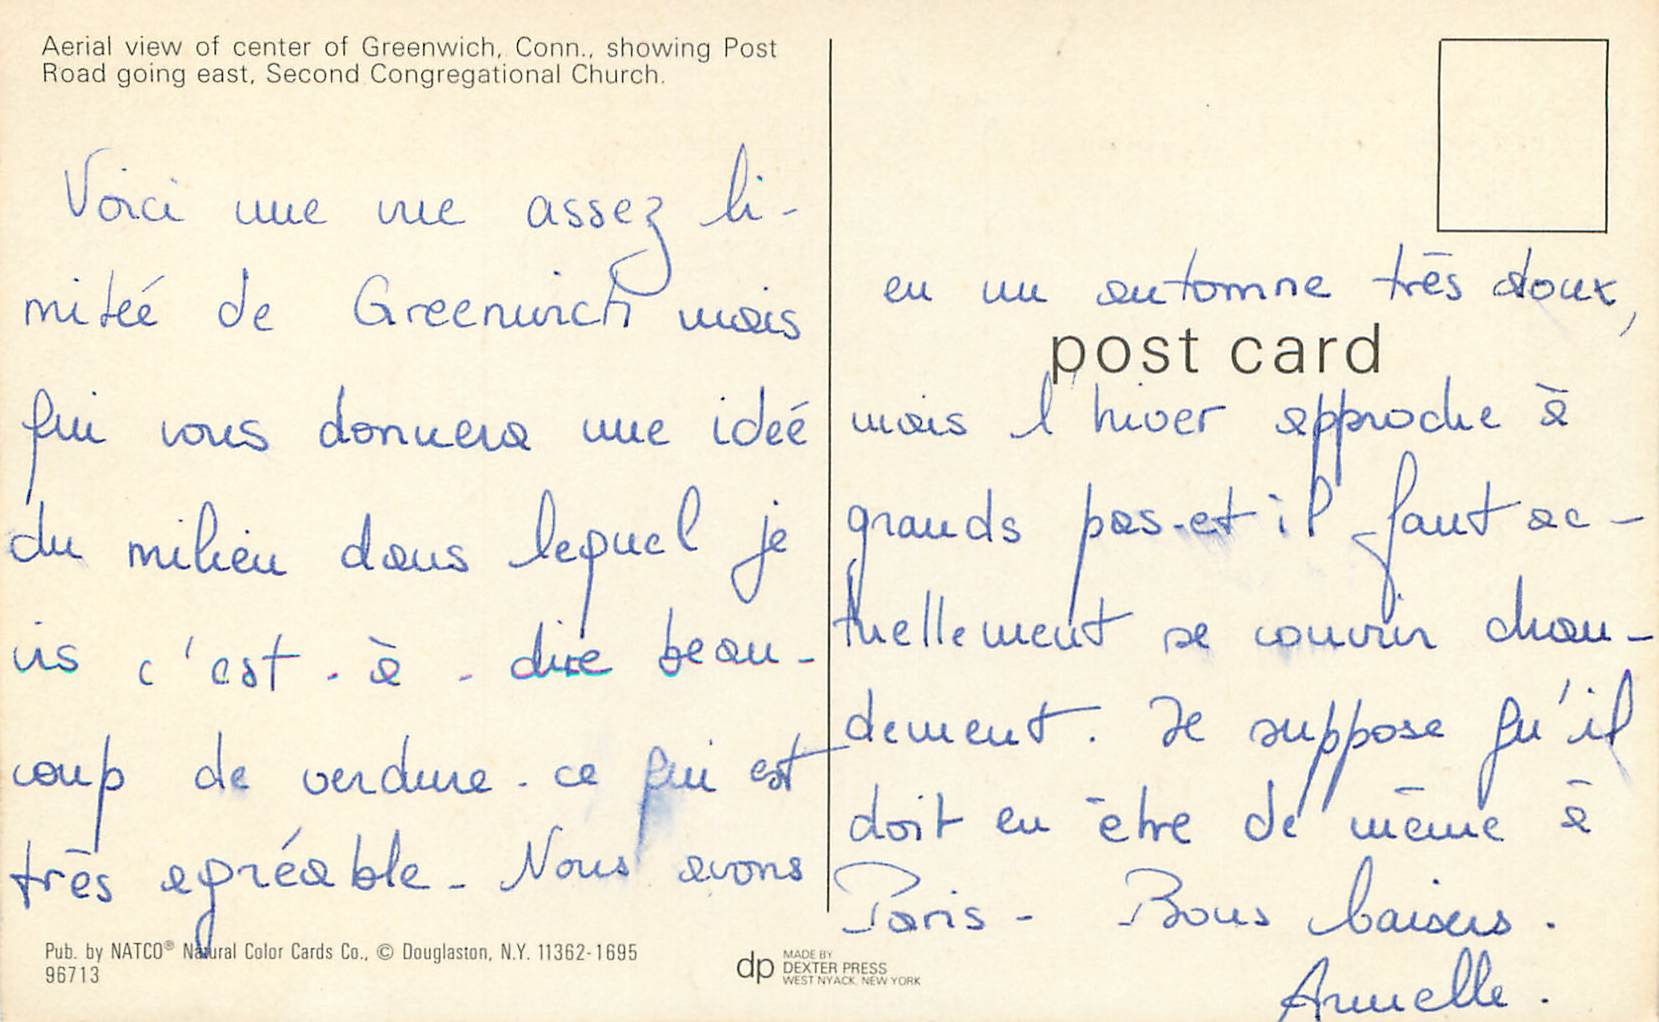 Aerial view of center of Greenwich, Conn., showing Post
Road going east, Second Congregational Church.
Voici une vue assez li-
mitée de Greenwich mais
qui vous donnera une idée
du milieu dans lequel je
vis c'est-à-dire beau-
coup de verdure - ce qui est
très agréable - Nous avons
eu un automne très doux,
post card
mais l'hiver approche à
grands pas - et il faut ac-
tuellement se couvrir chau-
dement. Je suppose qu'il
doit en être de même à
Paris - Bons baisers.
Armelle.
Pub. by NATCO® Natural Color Cards Co., © Douglaston, N.Y. 11362-1695
96713
dp MADE BY
DEXTER PRESS
WEST NYACK, NEW YORK